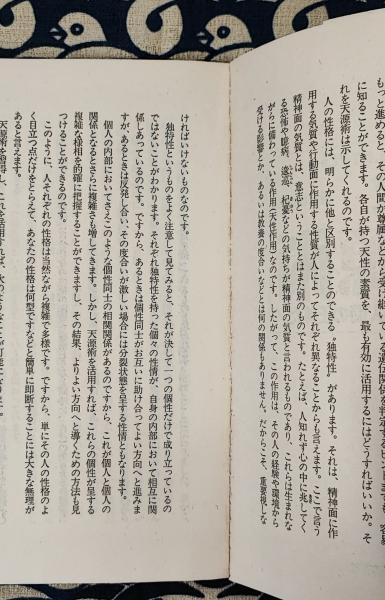 もっと進めると、その人間が尊属などから受け継いでいる遺伝関係を判定するヒントにも、容易
に知ることができます。各自が持つ天性の素質を、最も有効に活用するにはどうすればいいか。そ
れを天源術は示してくれるのです。
人の性格には、明らかに他と区別することのできる〝独特性〟があります。それは、精神面に作
用する気質や行動面に作用する性質が人によってそれぞれ異なることからも言えます。ここで言う
精神面の気質とは、意志ということとはまた別のものです。たとえば、人知れず心の中に兆してく
る恐怖や臆病、逡巡、杞憂などの気持ちが精神面の気質と言われるものであり、これらは生まれな
がらに備わっている作用（天性作用）なのです。したがって、この作用は、その人の経験や環境から
受ける影響とか、あるいは教養の度合いなどとは何の関係もありません。だからこそ、重要視しな
ければいけないものなのです。
独特性というものをよく注意して見てみると、それが決して一つの個性だけで成り立っているの
ではないことがわかります。それぞれ独特性を持った個々の性情が、自身の内部において相互に関
係しあっているのです。ですから、あるときは個性同士がお互いに助け合ってよい方向へと進みま
すが、あるときは反発し合い、その度合いが激しい場合には分裂状態を呈する性情ともなります。
個人の内部においてさえこのような個性同士の相関関係があるのですから、これが個人と個人の
関係となるとさらに複雑さも増してきます。しかし、天源術を活用すれば、これらの個性が呈する
複雑な様相を的確に把握することができますし、その結果、よりよい方向へと導くための方法も見
つけることができるのです。
このように、人それぞれの性格は当然ながら複雑で多様です。ですから、単にその人の性格のよ
く目立つ点だけをとらえて、あなたの性格は何型ですなどと簡単に即断することには大きな無理が
あると言えます。